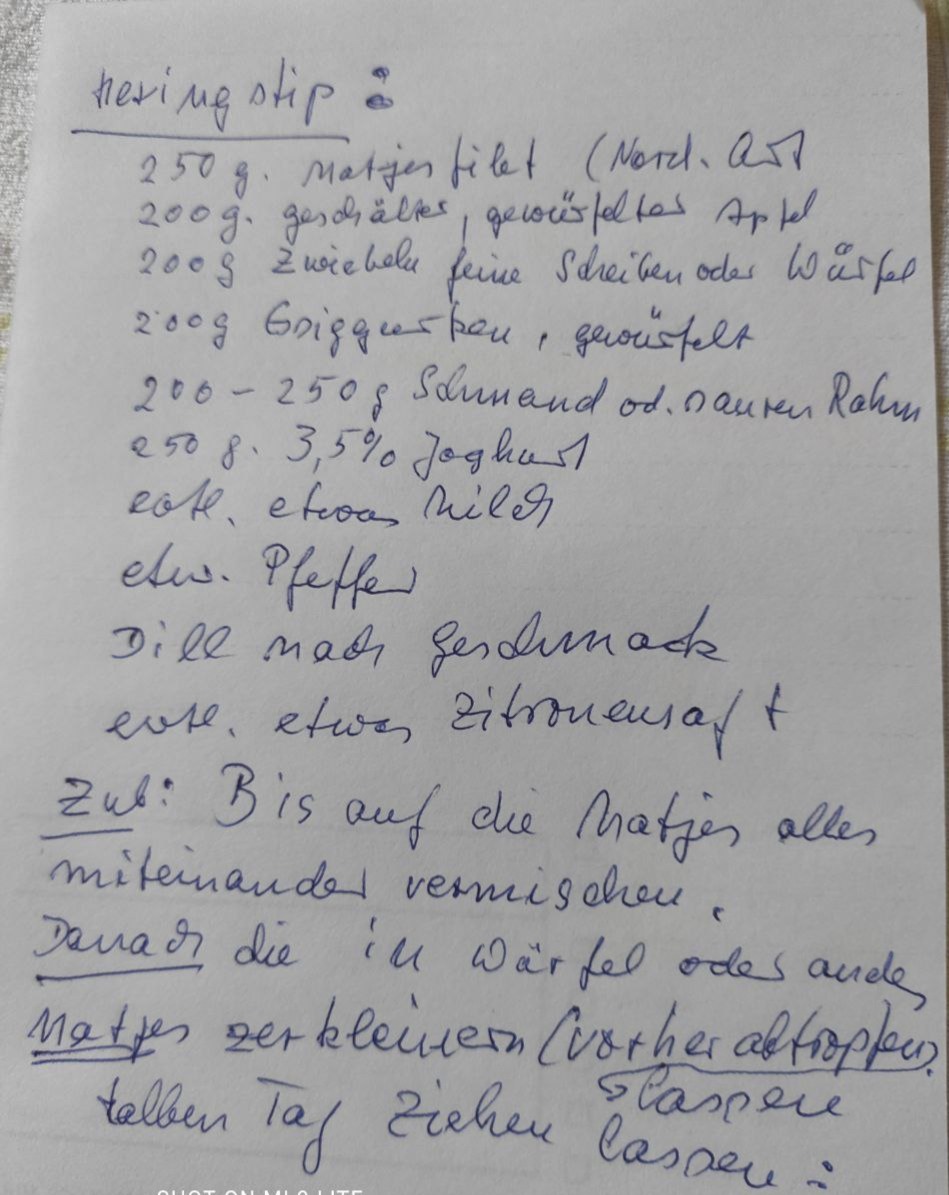 Heringstip:
250 g. Matjesfilet (Nord. Art
200 g. geschälter, gewürfelter Apfel
200 g Zwiebeln feine Scheiben oder Würfel
200 g Essiggurken, gewürfelt
200 - 250 g Schmand od. sauren Rahm
250 g. 3,5% Joghurt
evtl. etwas Milch
etw. Pfeffer
Dill nach Geschmack
evtl. etwas Zitronensaft
Zub: Bis auf die Matjes alles
miteinander vermischen.
Danach die in Würfel oder anders
Matjes zerkleinern (vorher abtropfen)
lassen
halben Tag ziehen lassen:
SHOT ON MI 8 LITE